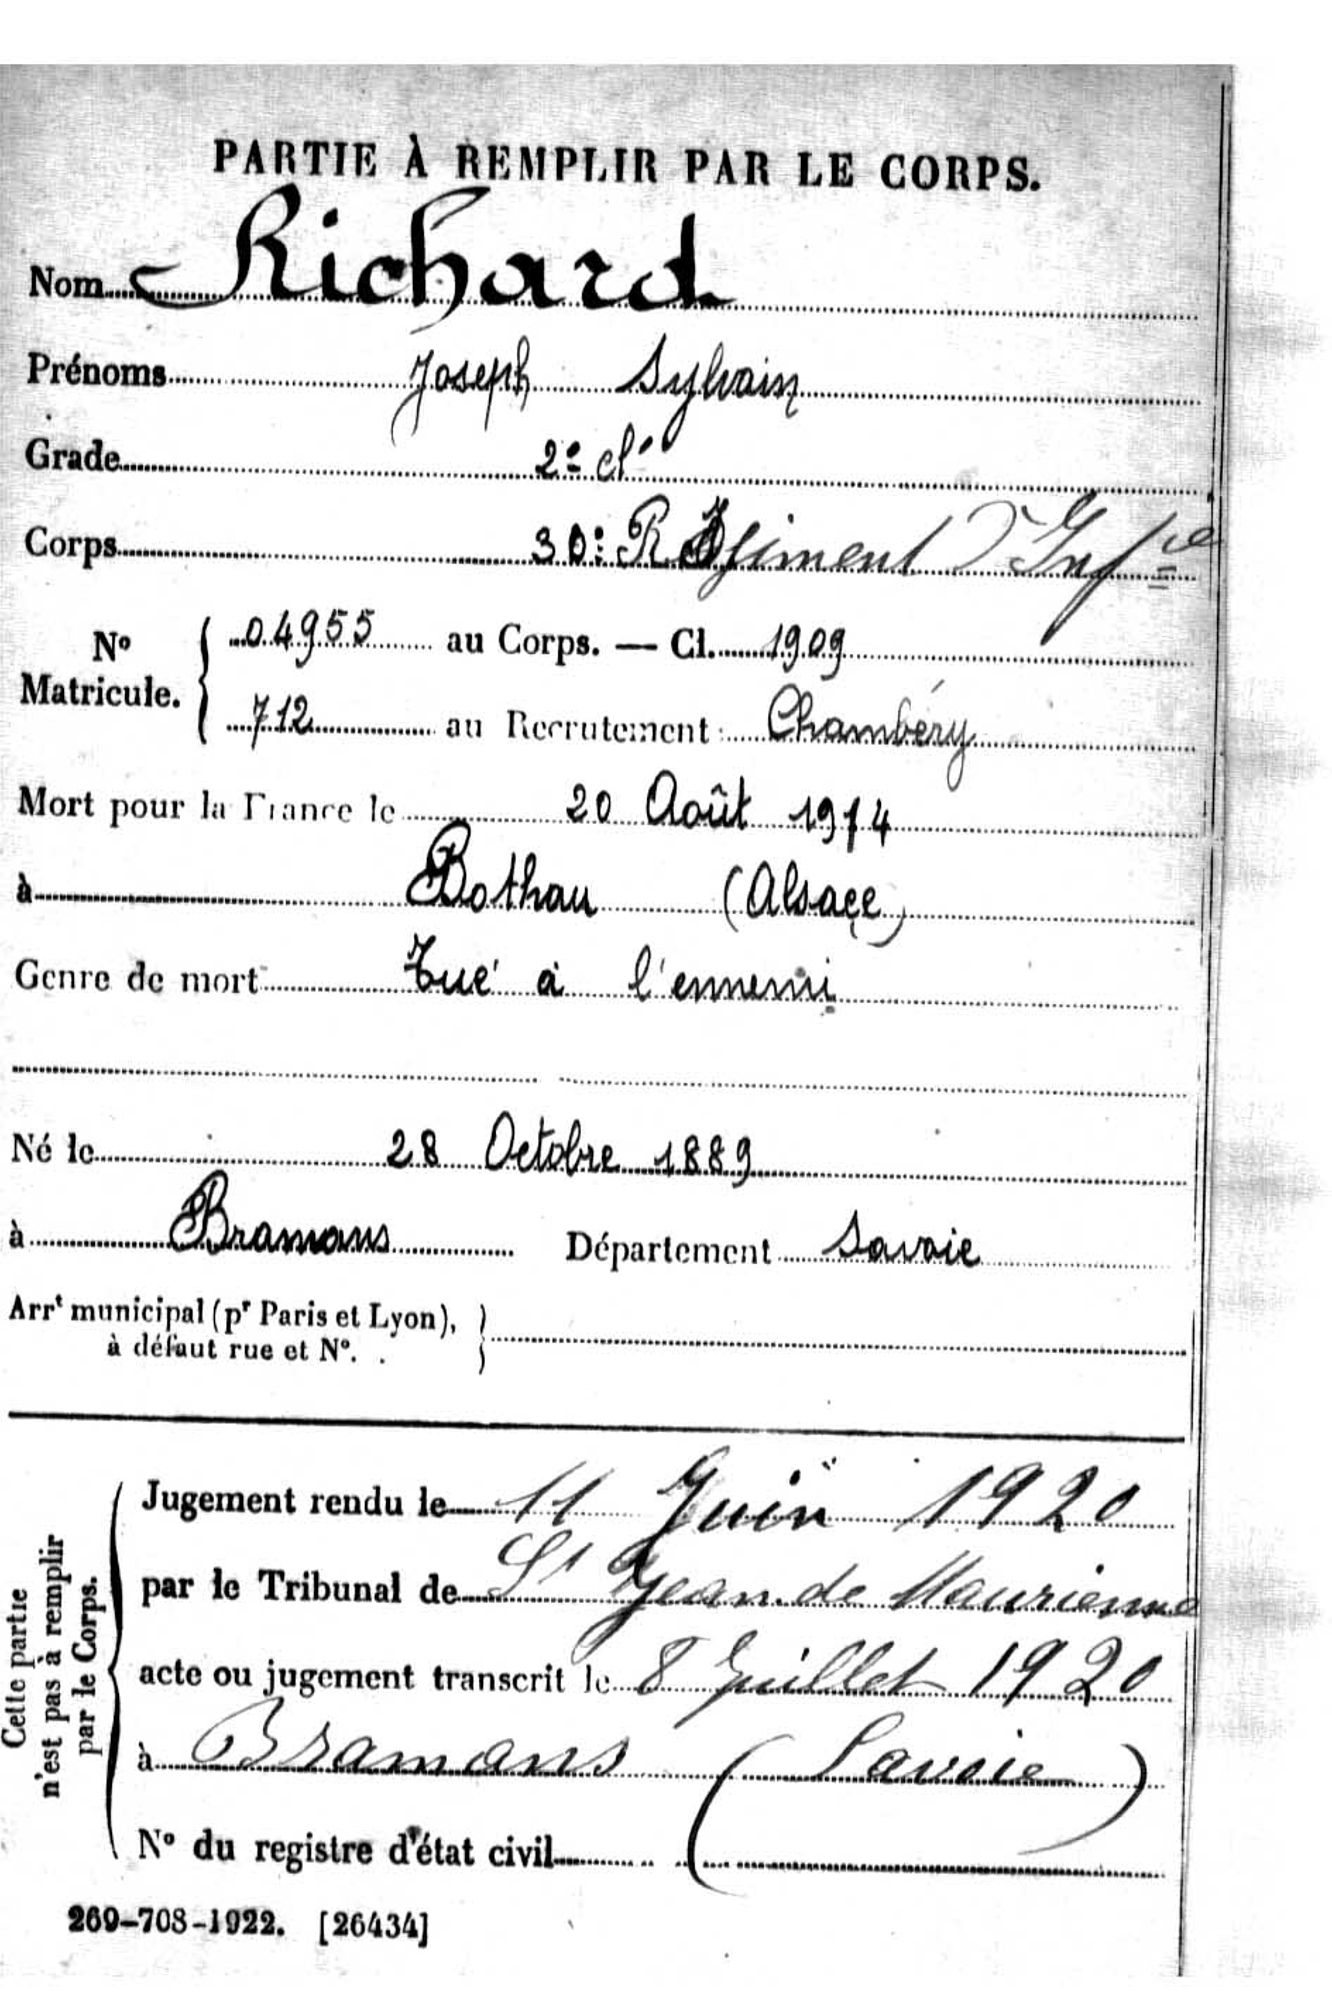 PARTIE À REMPLIR PAR LE CORPS.
Nom Richard
Prénoms Joseph Sylvain
Grade 2e cl
Corps 30e Régiment d'Infie
No Matricule. 04955 au Corps. — Cl. 1909
712 au Recrutement Chambéry
Mort pour la France le 20 Août 1914
à Bothau (Alsace)
Genre de mort Tué à l'ennemi
Né le 28 Octobre 1889
à Bramans Département Savoie
Arrt municipal (pr Paris et Lyon),
à défaut rue et No.
Cette partie
n'est pas à remplir
par le Corps.
Jugement rendu le 11 Juin 1920
par le Tribunal de St Jean de Maurienne
acte ou jugement transcrit le 8 Juillet 1920
à Bramans (Savoie)
No du registre d'état civil
269-708-1922. [26434]